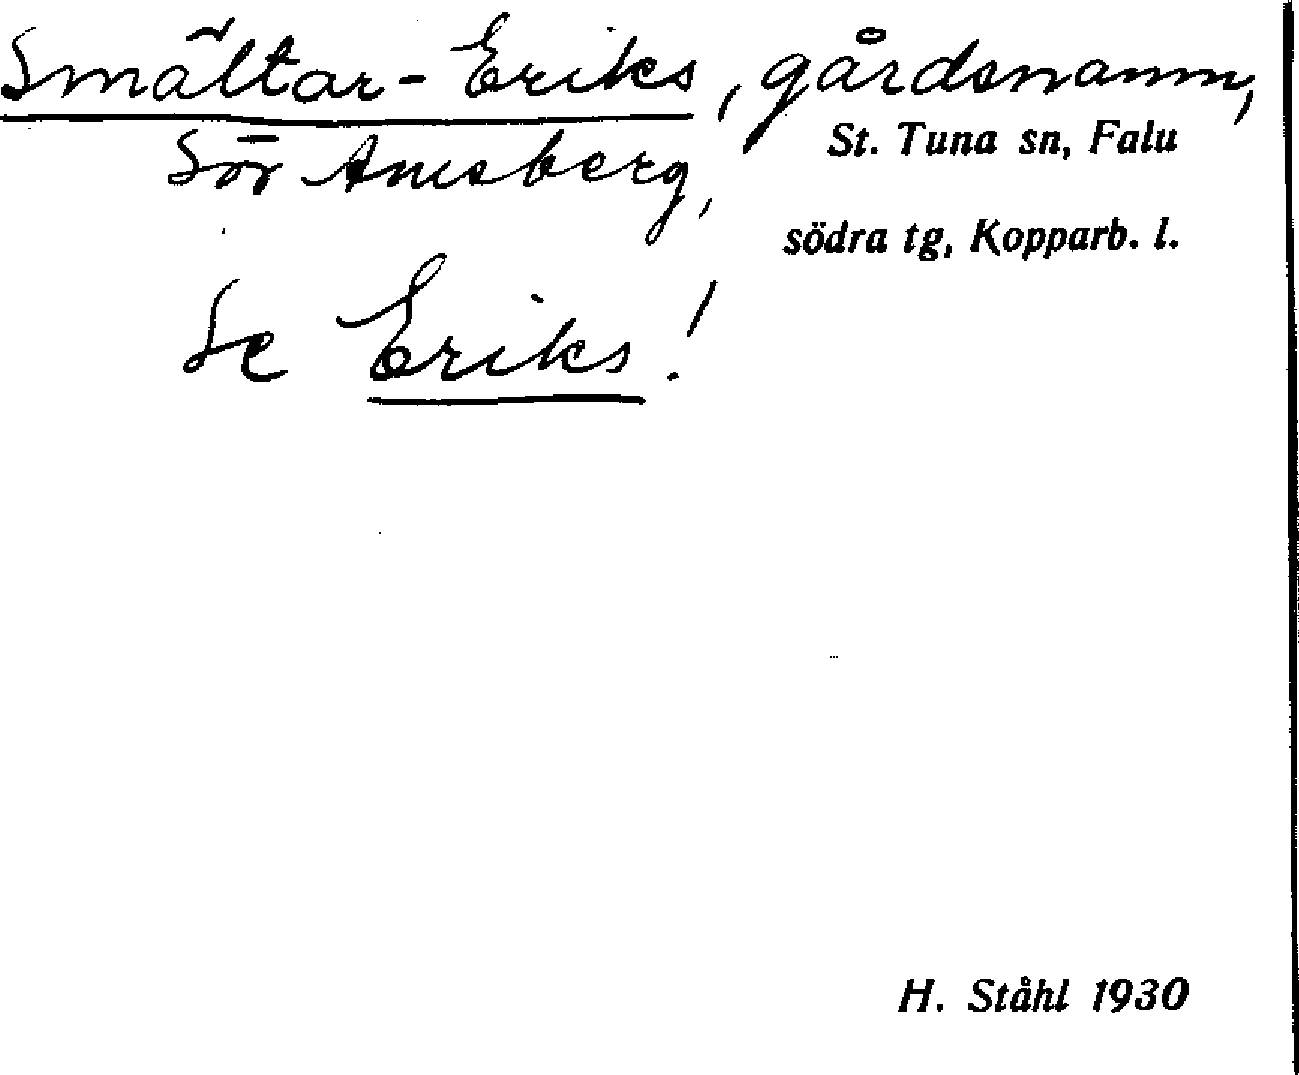 Smältar-Eriks, gårdsnamn,
Sör Amsberg,
St. Tuna sn, Falu
södra tg, Kopparb. l.
Se Eriks!
H. Ståhl 1930